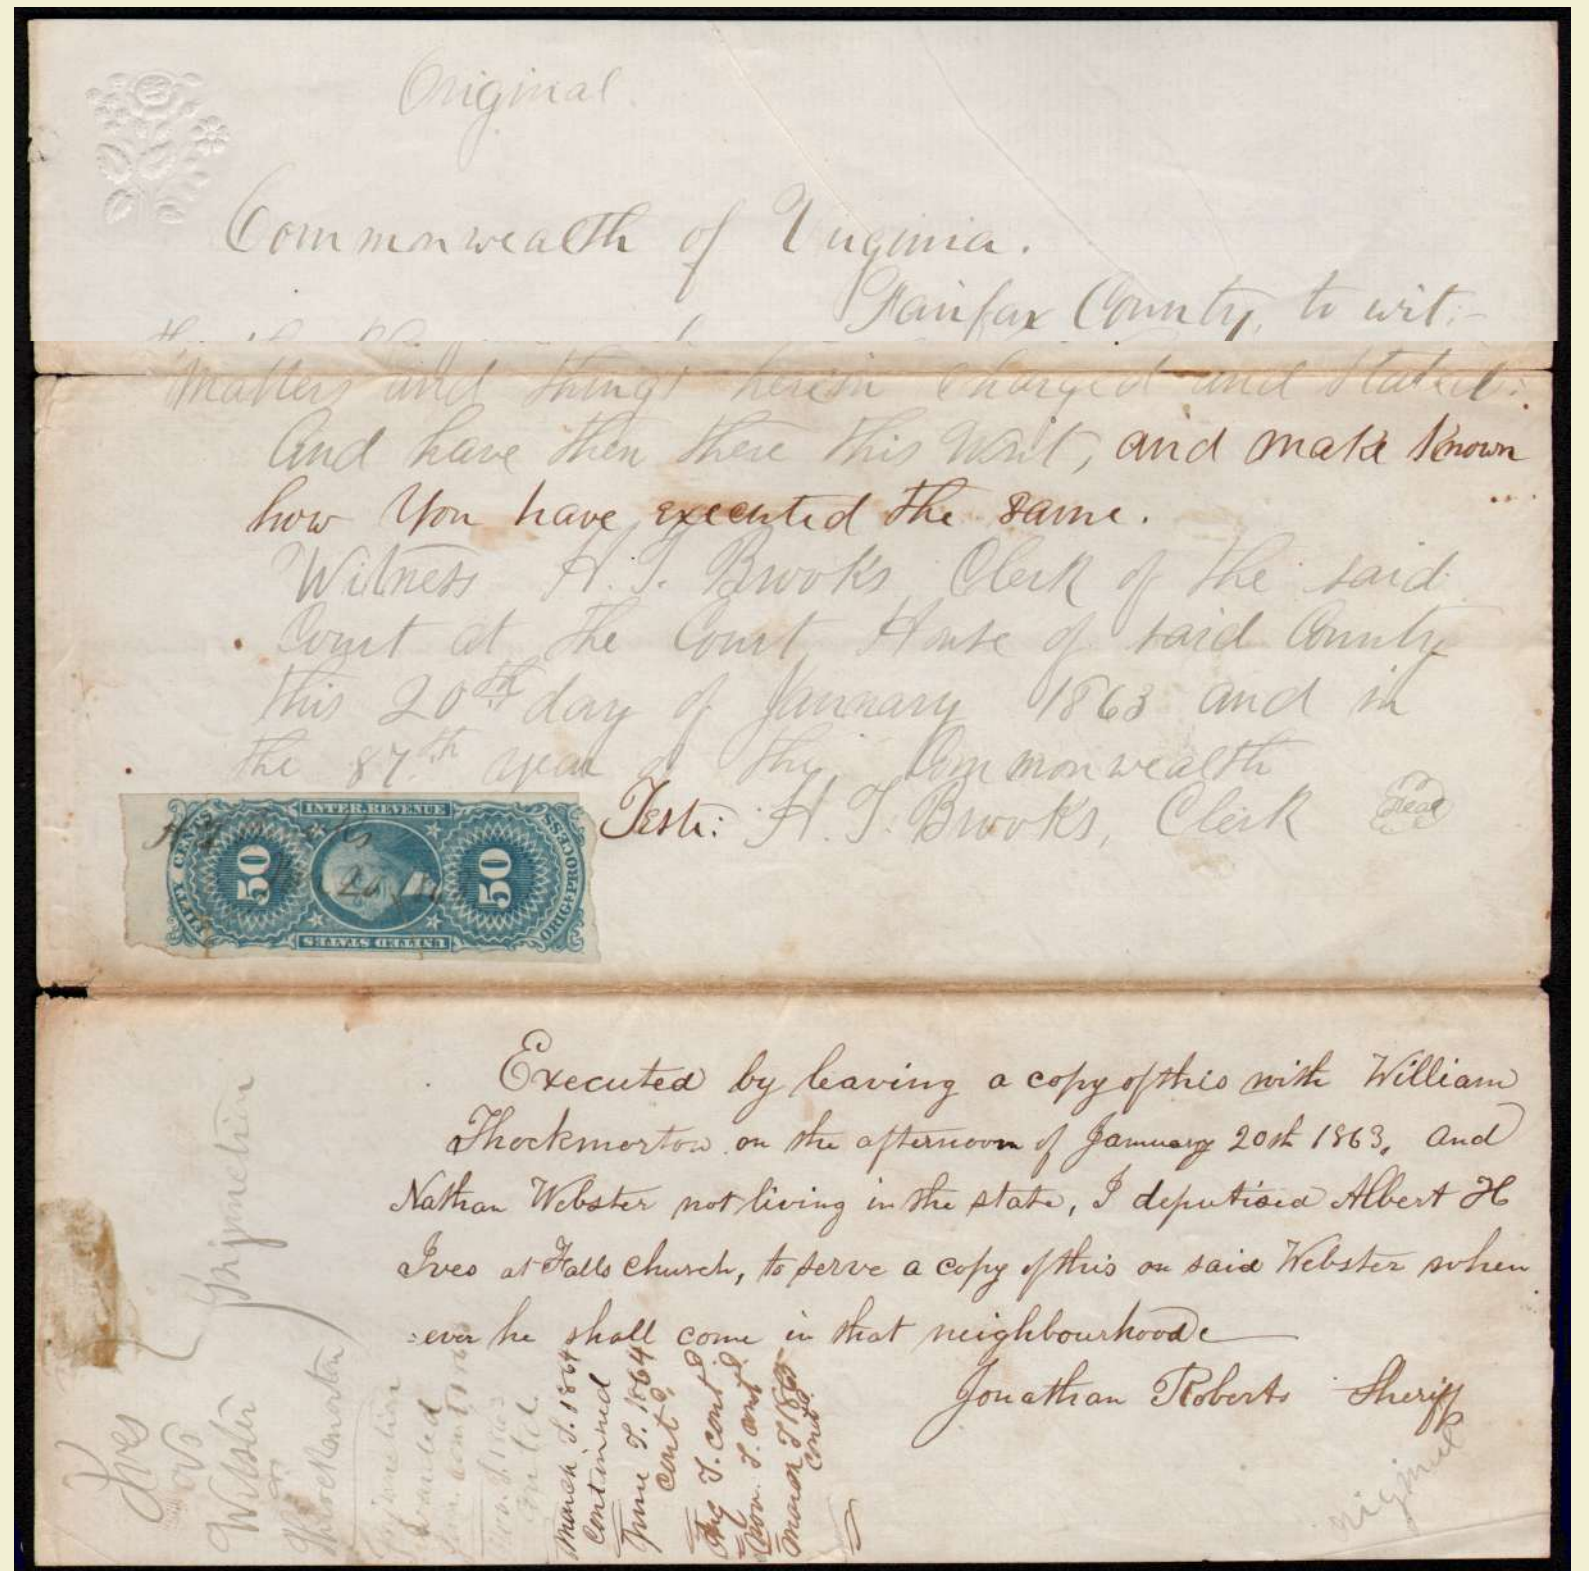 Original
Commonwealth of Virginia.
Fairfax County, to wit:-
Matters and things herein charged and stated.
And have then there this Writ, and make known
how You have executed the same.
Witness H. T. Brooks Clerk of the said
Court at the Court House of said County
this 20th day of January 1863 and in
the 87th year of the Commonwealth
Teste: H. T. Brooks, Clerk Seal
INTER. REVENUE
FIFTY CENTS
50
50
ORIG. PROCESS
UNITED STATES
20
Executed by leaving a copy of this with William
Thockmorton on the afternoon of January 20th 1863. And
Nathan Webster not living in the state, I deputised Albert H
Ives at Falls Church, to serve a copy of this on said Webster when
=ever he shall come in that neighbourhood
Jonathan Roberts Sheriff
Ives
vs
Webster
&
Thockmorton
Injunction
Injunction
granted
March T. 1864
Continued
June T. 1864
Contd.
Aug T. contd
Nov. T. contd
March T 1865
contd.
Original